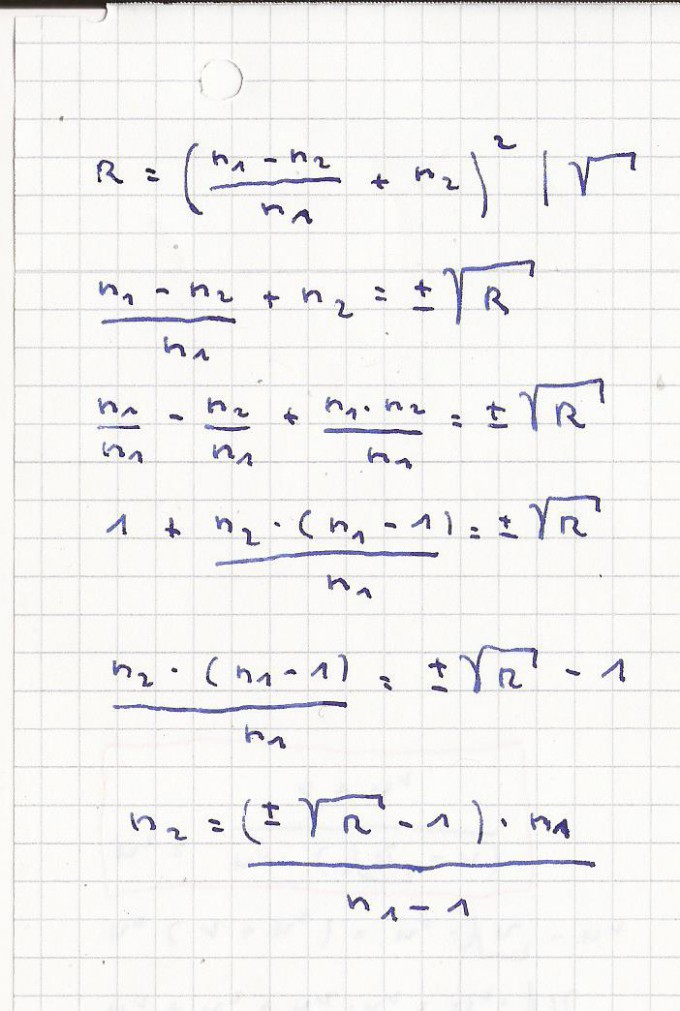 R = ( (n₁ - n₂)/n₁ + n₂ )² | √
(n₁ - n₂)/n₁ + n₂ = ± √R
n₁/n₁ - n₂/n₁ + (n₁ · n₂)/n₁ = ± √R
1 + (n₂ · (n₁ - 1))/n₁ = ± √R
(n₂ · (n₁ - 1))/n₁ = ± √R - 1
n₂ = ((± √R - 1) · n₁)/(n₁ - 1)